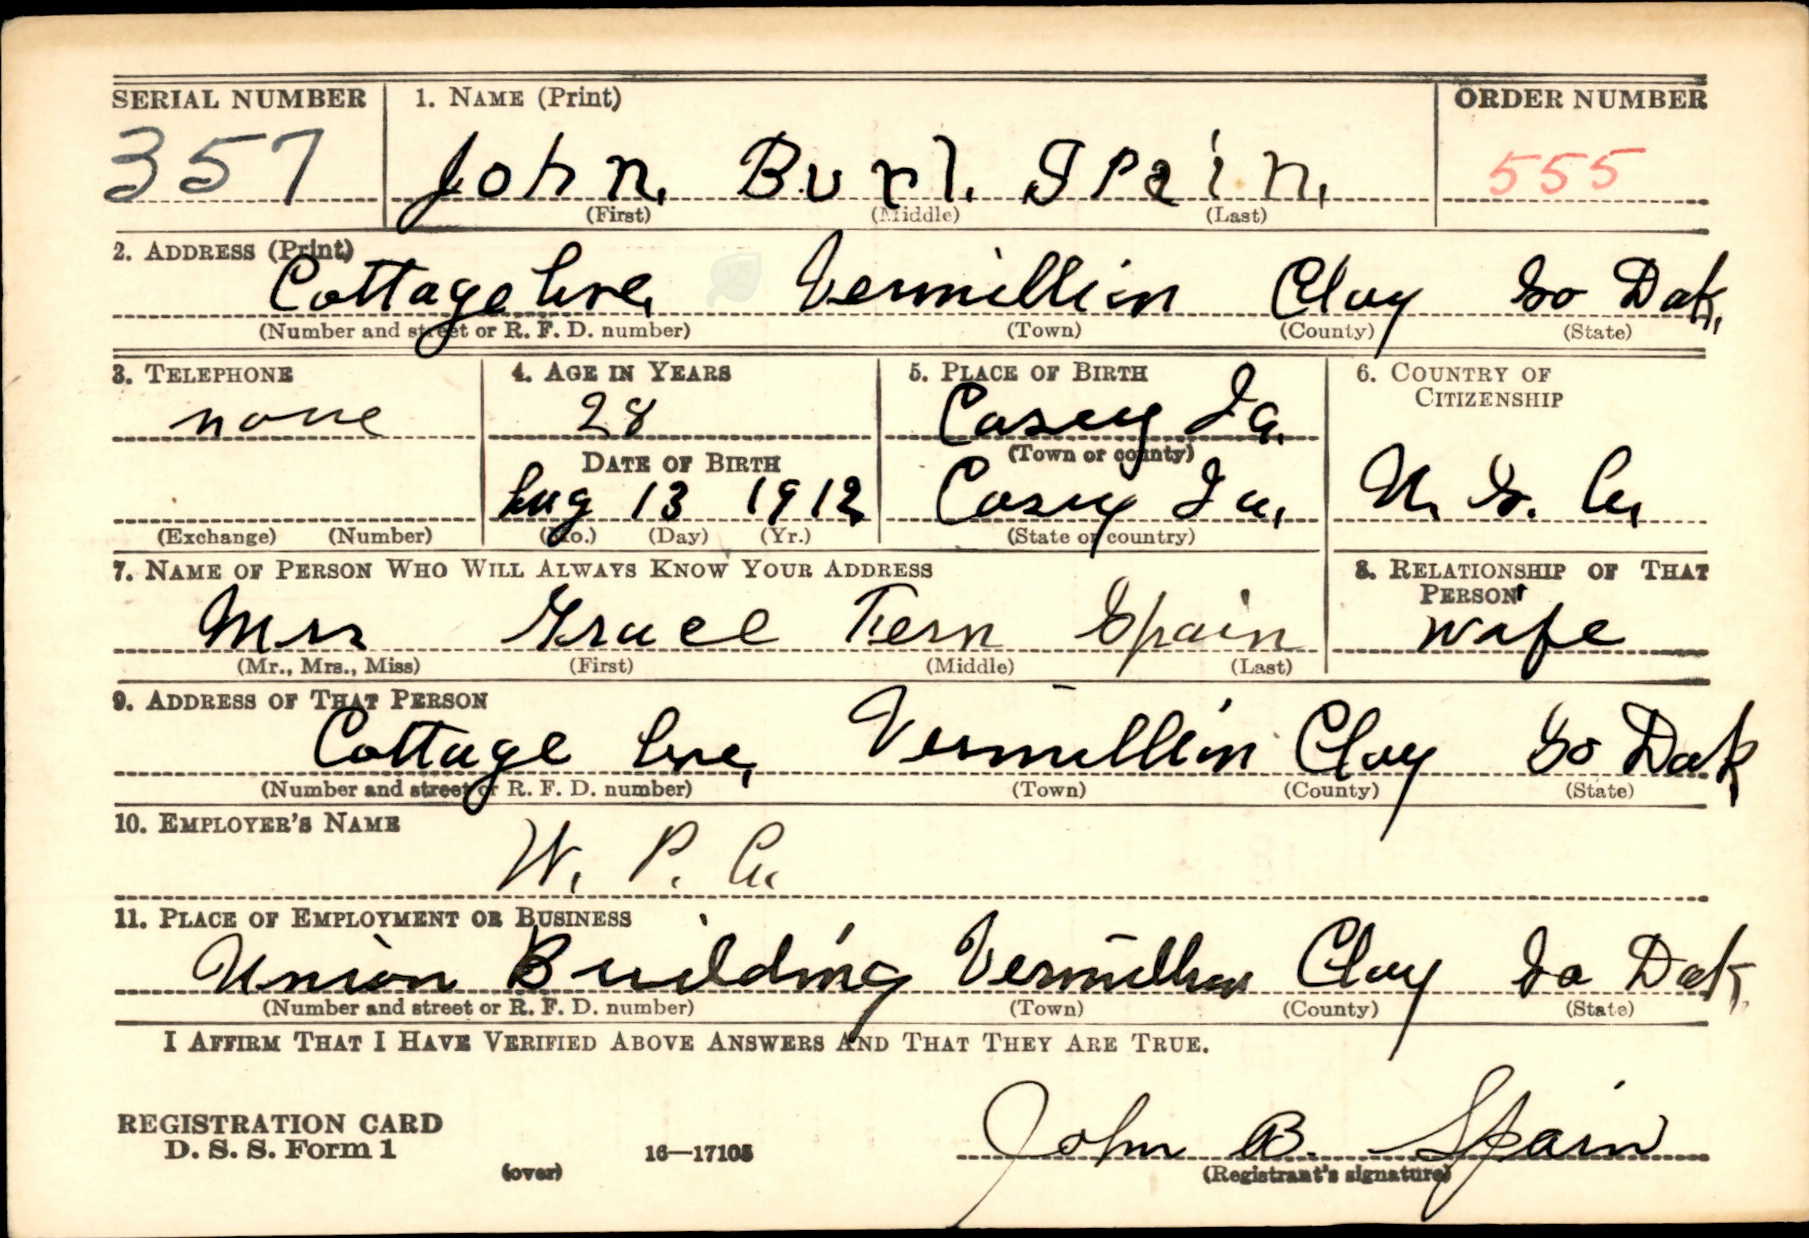 SERIAL NUMBER 1. NAME (Print) ORDER NUMBER
357 John Burl Spain 555
(First) (Middle) (Last)
2. ADDRESS (Print)
Cottage Ave, Vermillion Clay So Dak,
(Number and street or R. F. D. number) (Town) (County) (State)
3. TELEPHONE 4. AGE IN YEARS 5. PLACE OF BIRTH 6. COUNTRY OF
CITIZENSHIP
none 28 Casey Ia.
DATE OF BIRTH (Town or county)
Aug 13 1912 Casey Ia, U. S. A,
(Exchange) (Number) (Mo.) (Day) (Yr.) (State or country)
7. NAME OF PERSON WHO WILL ALWAYS KNOW YOUR ADDRESS 8. RELATIONSHIP OF THAT
PERSON
Mrs Grace Fern Spain wife
(Mr., Mrs., Miss) (First) (Middle) (Last)
9. ADDRESS OF THAT PERSON
Cottage Ave, Vermillion Clay So Dak
(Number and street or R. F. D. number) (Town) (County) (State)
10. EMPLOYER'S NAME
W. P. A.
11. PLACE OF EMPLOYMENT OR BUSINESS
Union Building Vermillion Clay So Dak,
(Number and street or R. F. D. number) (Town) (County) (State)
I AFFIRM THAT I HAVE VERIFIED ABOVE ANSWERS AND THAT THEY ARE TRUE.
REGISTRATION CARD
D. S. S. Form 1 16—17105 John B. Spain
(over) (Registrant's signature)